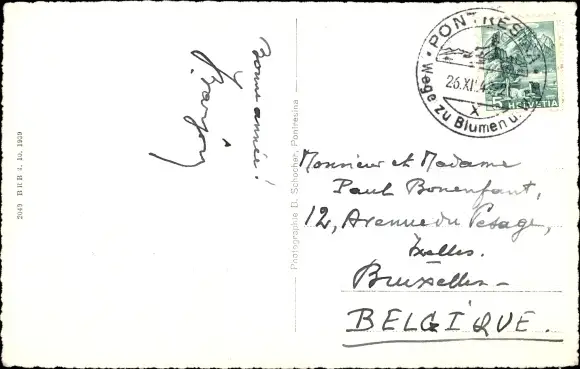 Bonne année!
2049 BRB 4. 10. 1939
Photographie D. Schocher, Pontresina
PONTRESINA
Wege zu Blumen u.
X
5 HELVETIA
Monsieur et Madame
Paul Bonenfant,
12, Avenue du Pesage,
Ixelles.
Bruxelles -
BELGIQUE.